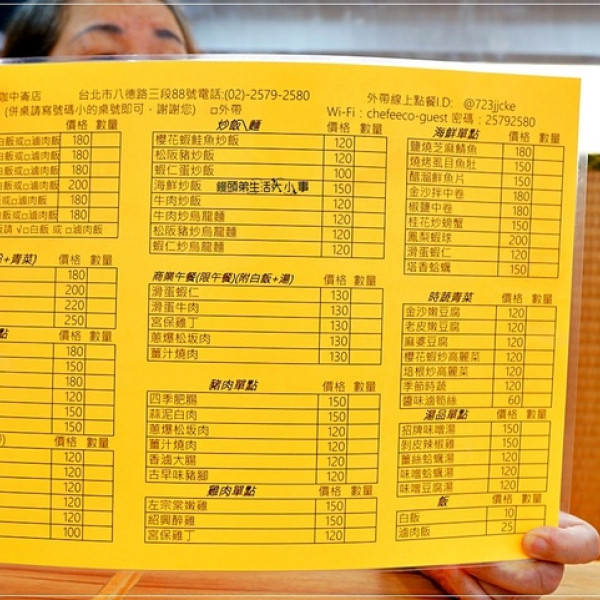 咖中崙店 台北市八德路三段88號電話:(02)-2579-2580 外帶線上點餐I.D: @723jjcke
(併桌請寫號碼小的桌號即可,謝謝您) □外帶 Wi-Fi : chefeeco-guest 密碼 : 25792580
價格 數量
白飯或□滷肉飯 180
白飯或□滷肉飯 180
白飯或□滷肉飯 180
白飯或□滷肉飯 200
白飯或□滷肉飯 180
白飯或□滷肉飯 180
飯請 √□白飯 或 □滷肉飯
+青菜) 價格 數量
180
200
220
250
點 價格 數量
180
150
180
120
150
150
價格 數量
120
120
120
120
120
100
炒飯\麵 價格 數量
櫻花蝦鮭魚炒飯 120
松阪豬炒飯 120
蝦仁蛋炒飯 100
海鮮炒飯 150
饅頭弟生活大小事
牛肉炒飯 120
牛肉炒烏龍麵 120
松阪豬炒烏龍麵 120
蝦仁炒烏龍麵 120
商業午餐(限午餐)(附白飯+湯) 價格 數量
滑蛋蝦仁 130
滑蛋牛肉 130
宮保雞丁 130
蔥爆松坂肉 130
薑汁燒肉 130
豬肉單點 價格 數量
四季肥腸 150
蒜泥白肉 150
蔥爆松坂肉 120
薑汁燒肉 120
香滷大腸 120
古早味豬腳 120
雞肉單點 價格 數量
左宗棠嫩雞 150
紹興醉雞 150
宮保雞丁 120
海鮮單點 價格 數量
鹽燒芝麻鯖魚 180
燒烤虱目魚肚 150
醋溜鮮魚片 150
金沙拌中卷 180
椒鹽中卷 180
桂花炒螃蟹 150
鳳梨蝦球 200
滑蛋蝦仁 120
塔香蛤蠣 150
時蔬青菜 價格 數量
金沙嫩豆腐 120
老皮嫩豆腐 120
麻婆豆腐 120
櫻花蝦炒高麗菜 120
培根炒高麗菜 120
季節時蔬 120
醬味滷筍絲 60
湯品單點 價格 數量
招牌味噌湯 150
剝皮辣椒雞 150
薑絲蛤蠣湯 120
味噌蛤蠣湯 120
味噌豆腐湯 120
飯 價格 數量
白飯 10
滷肉飯 25